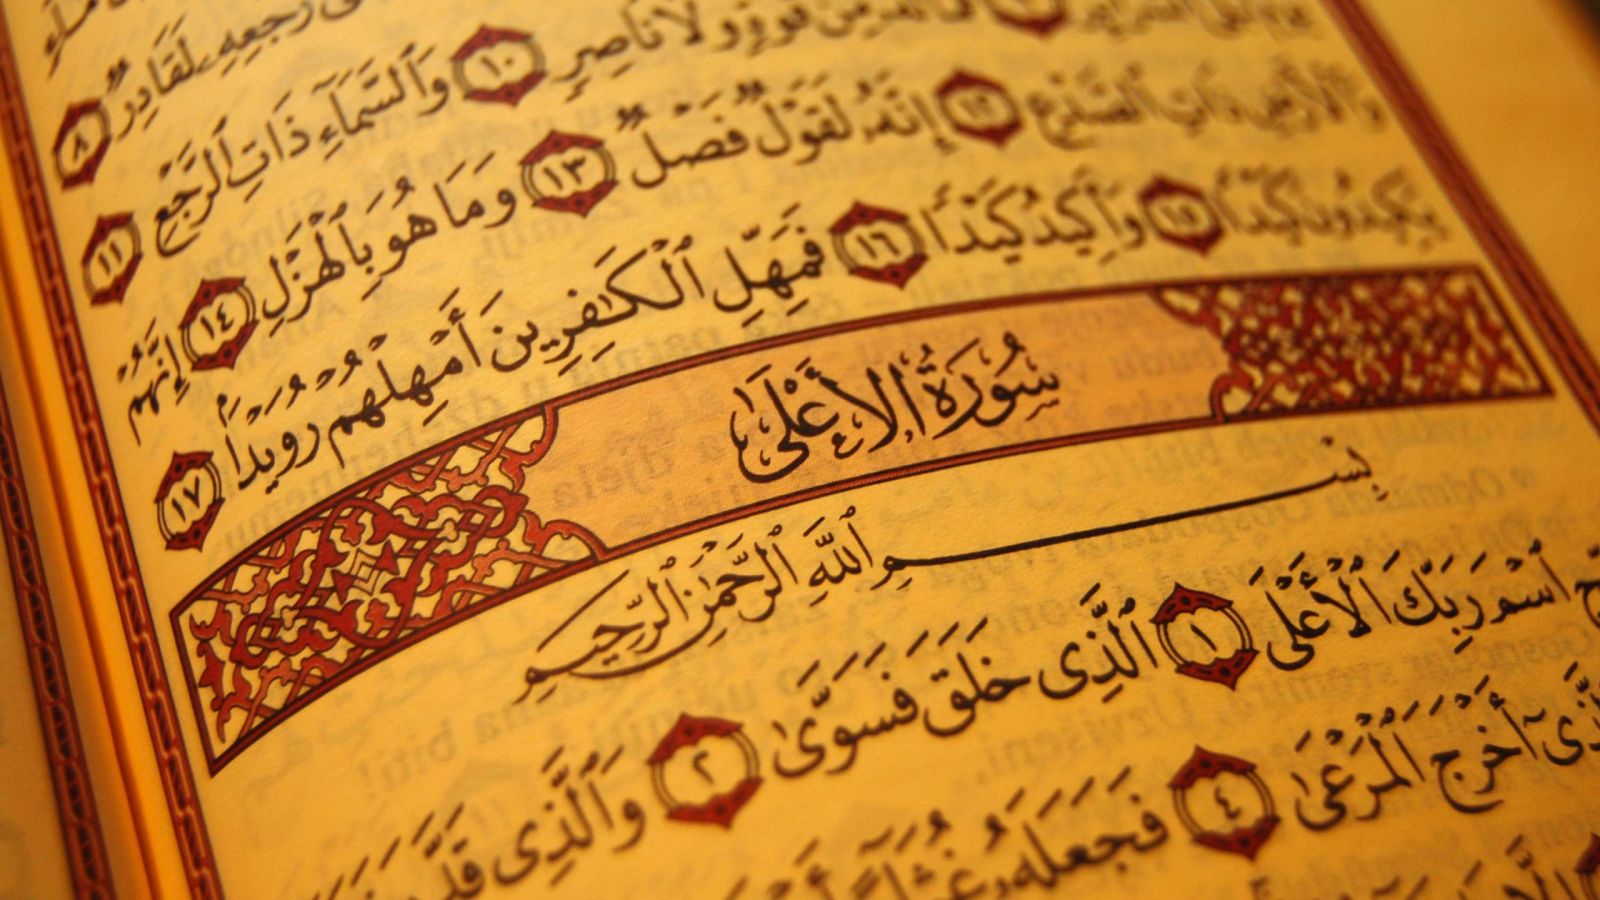 رَجْعِهِ لَقَادِرٌ ٨
قُوَّةٍ وَلَا نَاصِرٍ ١٠ وَٱلسَّمَآءِ ذَاتِ ٱلرَّجْعِ ١١
وَٱلْأَرْضِ ذَاتِ ٱلصَّدْعِ ١٢ إِنَّهُۥ لَقَوْلٌ فَصْلٌ ١٣ وَمَا هُوَ بِٱلْهَزْلِ ١٤ إِنَّهُمْ
يَكِيدُونَ كَيْدًا ١٥ وَأَكِيدُ كَيْدًا ١٦ فَمَهِّلِ ٱلْكَٰفِرِينَ أَمْهِلْهُمْ رُوَيْدًۢا ١٧
سُورَةُ الأَعْلَىٰ
بِسْمِ ٱللَّهِ ٱلرَّحْمَٰنِ ٱلرَّحِيمِ
ٱسْمَ رَبِّكَ ٱلْأَعْلَى ١ ٱلَّذِى خَلَقَ فَسَوَّىٰ ٢ وَٱلَّذِى
أَخْرَجَ ٱلْمَرْعَىٰ ٤ فَجَعَلَهُۥ غُثَآءً